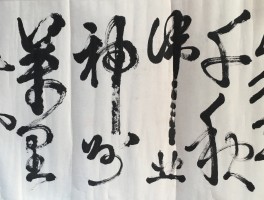 千秋
伟业
神州
萬里